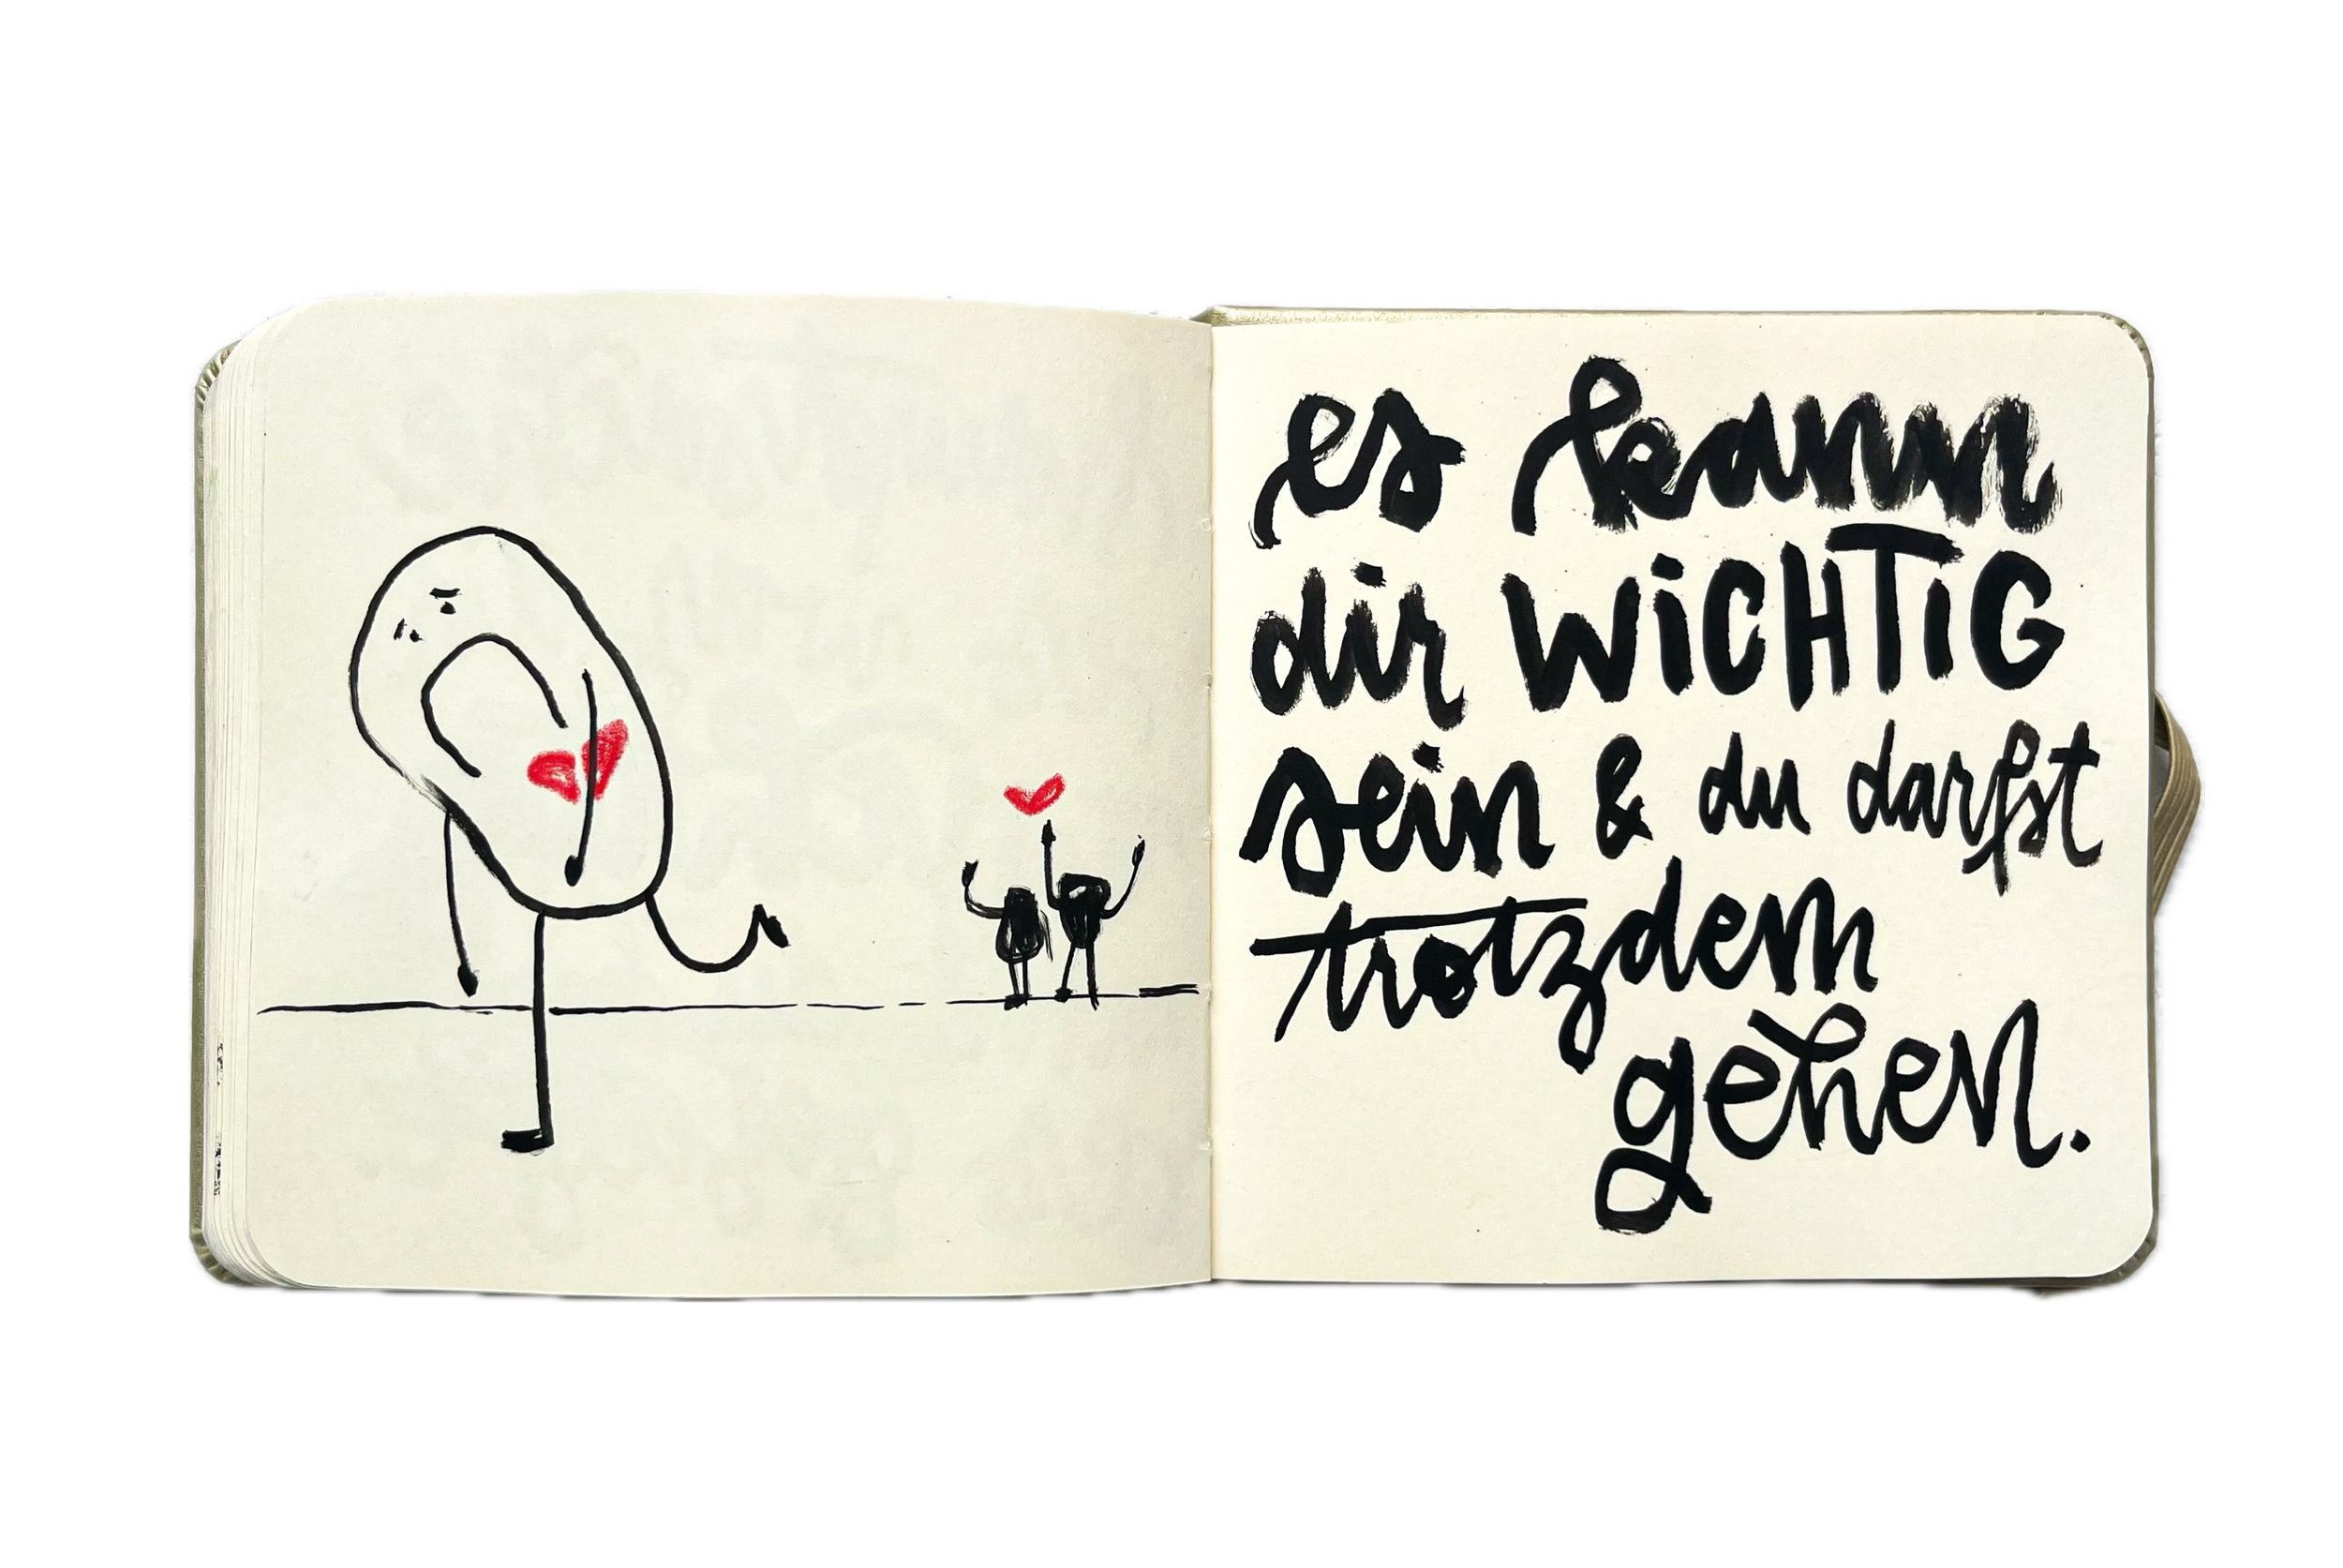 es kann
dir WiCHTiG
sein & du darfst
trotzdem
gehen.